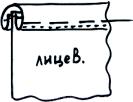 лицев.